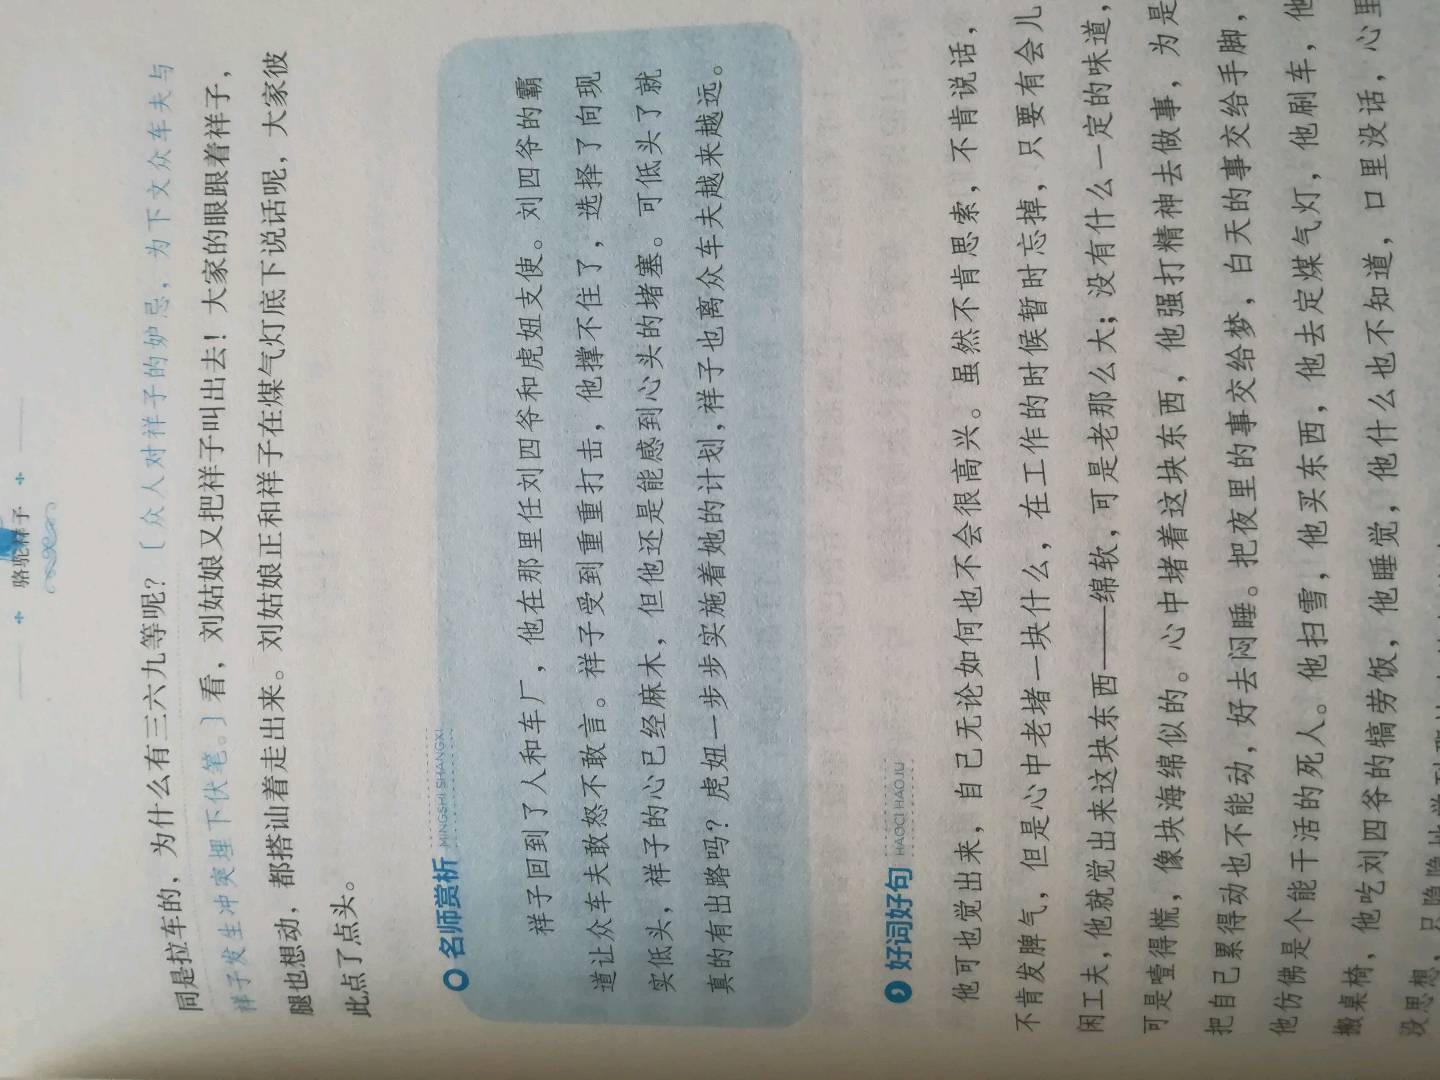 骆驼祥子
同是拉车的，为什么有三六九等呢？〔众人对祥子的妒忌，为下文众车夫与
祥子发生冲突埋下伏笔。〕看，刘姑娘又把祥子叫出去！大家的眼跟着祥子，
腿也想动，都搭讪着走出来。刘姑娘正和祥子在煤气灯底下说话呢，大家彼
此点了点头。
名师赏析 MINGSHI SHANGXI
祥子回到了人和车厂，他在那里任刘四爷和虎妞支使。刘四爷的霸
道让众车夫敢怒不敢言。祥子受到重重打击，他撑不住了，选择了向现
实低头，祥子的心已经麻木，但他还是能感到心头的堵塞。可低头了就
真的有出路吗？虎妞一步步实施着她的计划，祥子也离众车夫越来越远。
好词好句 HAOCI HAOJU
他可也觉出来，自己无论如何也不会很高兴。虽然不肯思索，不肯说话，
不肯发脾气，但是心中老堵一块什么，在工作的时候暂时忘掉，只要有会儿
闲工夫，他就觉出来这块东西——绵软，可是老那么大；没有什么一定的味道，
可是噎得慌，像块海绵似的。心中堵着这块东西，他强打精神去做事，为是
把自己累得动也不能动，好去闷睡。把夜里的事交给梦，白天的事交给手脚，
他仿佛是个能干活的死人。他扫雪，他买东西，他去定煤气灯，他刷车，他
搬桌椅，他吃刘四爷的犒劳饭，他睡觉，他什么也不知道，口里没话，心里
没思想，只隐隐地觉到